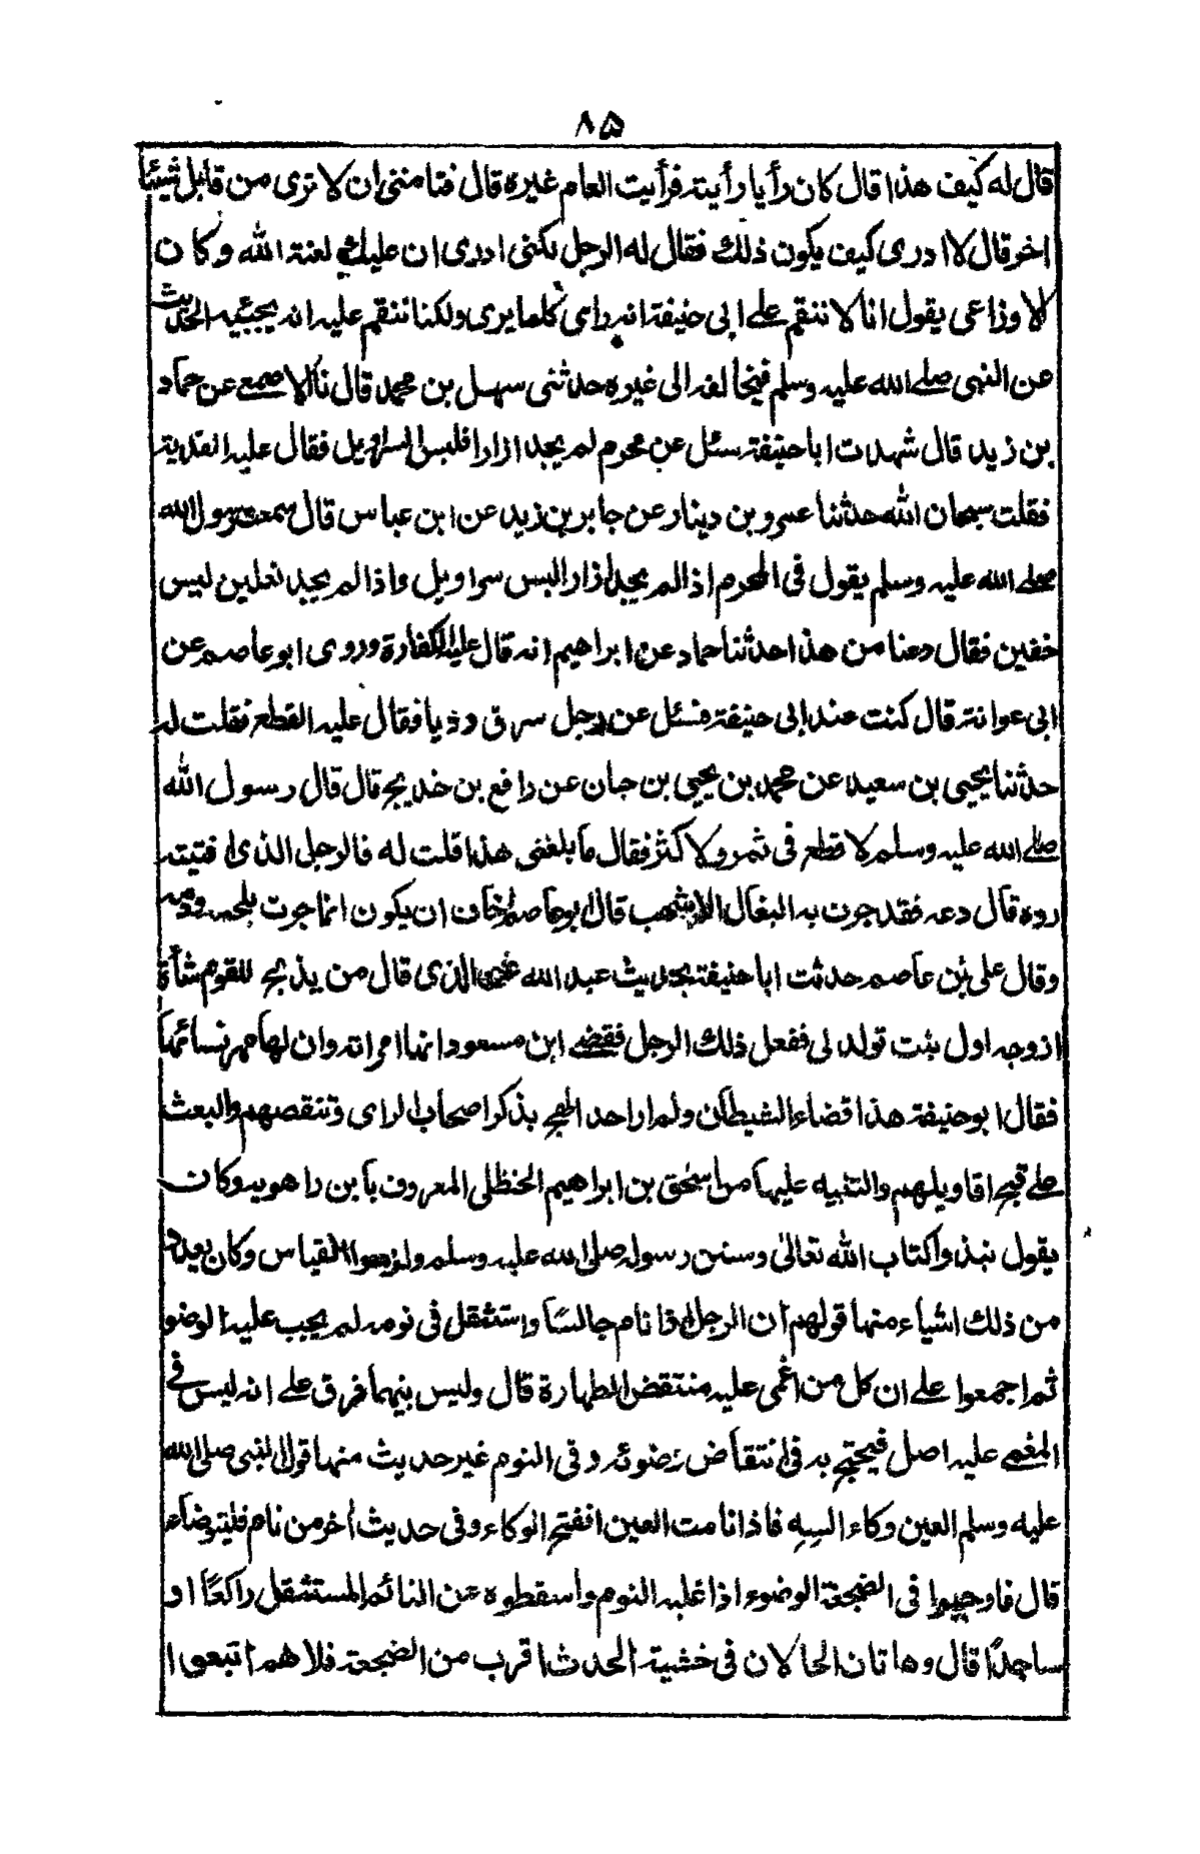 ٨٥
قال له كيف هذا قال كان رأيا رأيته فرأيت العام غيره قال فتامننى ان لا ترى من قابل شيئا
اخر قال لا ادرى كيف يكون ذلك فقال له الرجل لكنى ادرى ان عليك لعنة الله وكان
الاوزاعى يقول انا لا ننقم على ابى حنيفة انه راى كلما يرى ولكنا ننقم عليه انه يجيئه الحديث
عن النبى صلى الله عليه وسلم فيخالفه الى غيره حدثنى سهل بن محمد قال نا الاصمعى عن حماد
بن زيد قال شهدت ابا حنيفة سئل عن محرم لم يجد ازارا فلبس السراويل فقال عليه الفدية
فقلت سبحان الله حدثنا عمرو بن دينار عن جابر بن زيد عن ابن عباس قال سمعت رسول الله
صلى الله عليه وسلم يقول فى المحرم اذا لم يجد ازارا لبس سراويل واذا لم يجد نعلين لبس
خفين فقال دعنا من هذا حدثنا حماد عن ابراهيم انه قال عليه الكفارة وروى ابو عاصم عن
ابى عوانة قال كنت عند ابى حنيفة فسئل عن رجل سرق وديا فقال عليه القطع فقلت له
حدثنا يحيى بن سعيد عن محمد بن يحيى بن حبان عن رافع بن خديج قال قال رسول الله
صلى الله عليه وسلم لا قطع فى ثمر ولا كثر فقال ما بلغنى هذا قلت له فالرجل الذى افتيته
رده قال دعه فقد جرت به البغال الاشهب قال ابو عاصم اخاف ان يكون انما جرت بلحمه ودمه
وقال على بن عاصم حدثت ابا حنيفة بحديث عبد الله الذى قال من يذبح للقوم شأة
ازوجه اول بنت تولد لى ففعل ذلك الرجل فقضى ابن مسعود انها امراته وان لها مهر نسائها
فقال ابو حنيفة هذا قضاء الشيطان ولم ار احد الهج بذكر اصحاب الراى وتنقصهم والبعث
على قبيح اقاويلهم والتنبيه عليها من اسحق بن ابراهيم الحنظلى المعروف بابن راهويه وكان
يقول نبذوا كتاب الله تعالى وسنن رسوله صلى الله عليه وسلم ولزموا القياس وكان يعدد
من ذلك اشياء منها قولهم ان الرجل اذا نام جالسًا واستثقل فى نومه لم يجب عليه الوضو
ثم اجمعوا على ان كل من اغمى عليه منتقض الطهارة قال وليس بينهما فرق على انه ليس فى
المغمى عليه اصل فيحتج به فى انتقاض وضوئه وفى النوم غير حديث منها قول النبى صلى الله
عليه وسلم العين وكاء السِه فاذا نامت العين انفتح الوكاء وفى حديث اخر من نام فليتوضاء
قال فاوجبوا فى الضجعة الوضوء اذا غلبه النوم واسقطوه عن النائم المستثقل راكعًا او
ساجدًا قال وهاتان الحالان فى خشية الحدث اقرب من الضجعة فلا هم اتبعوا